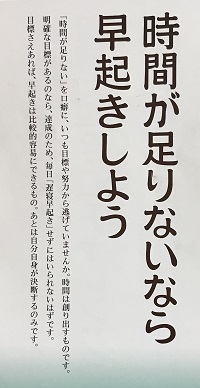 時間が足りないなら
早起きしよう
『時間が足りない』を口癖に、いつも目標や努力から逃げていませんか。時間は創り出すものです。
明確な目標があるのなら、達成のため、毎日『遅寝早起き』せずにはいられないはずです。
目標さえあれば、早起きは比較的容易にできるもの。あとは自分自身が決断するのみです。